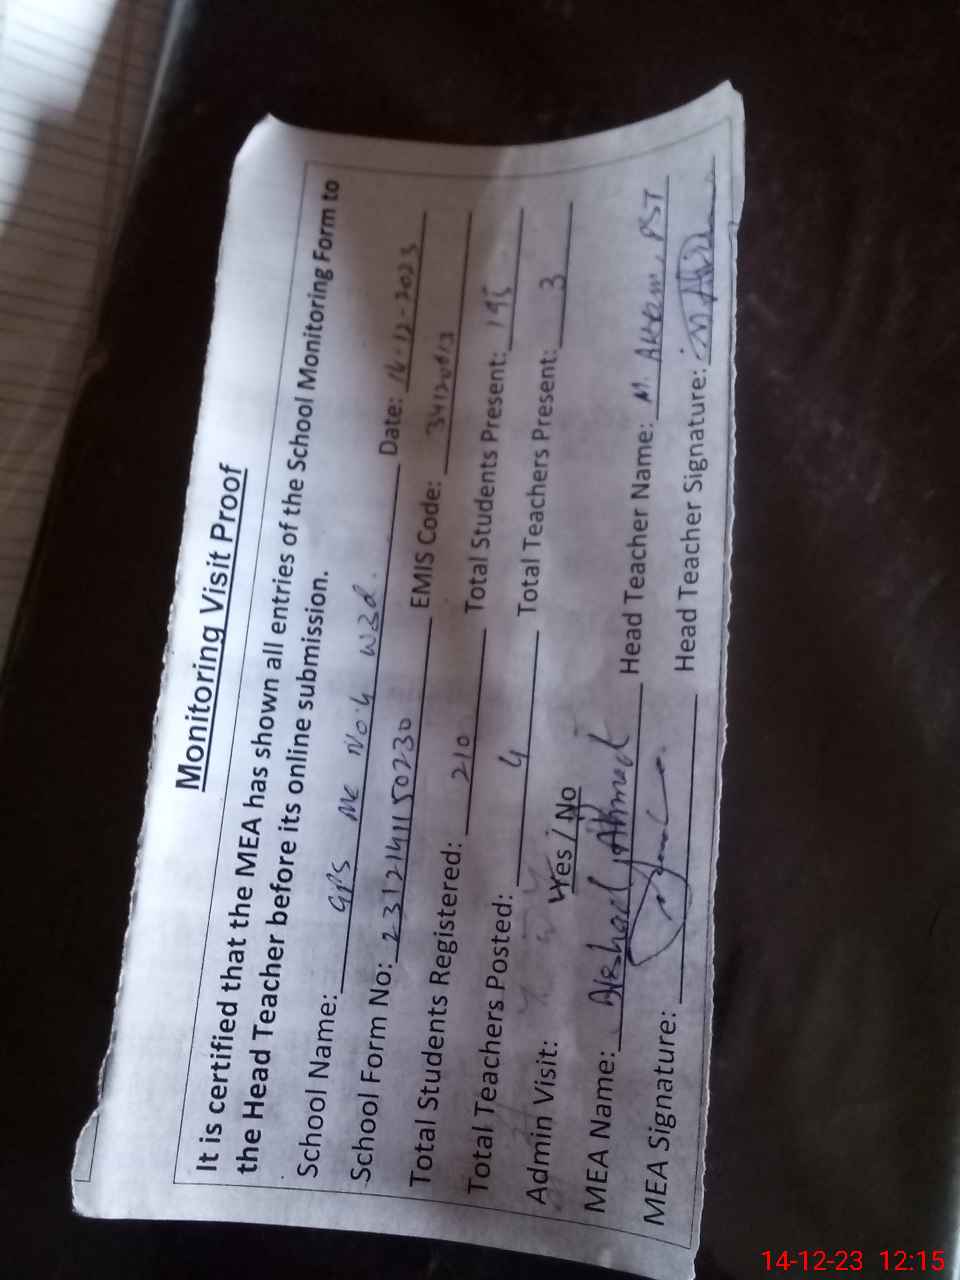 Monitoring Visit Proof
It is certified that the MEA has shown all entries of the School Monitoring Form to
the Head Teacher before its online submission.
School Name: GPS MC No.4 W3d.
School Form No: 2312141150230 Date: 14-12-2023
Total Students Registered: 210 EMIS Code:
Total Teachers Posted: 4 Total Students Present: 195
Admin Visit: Yes / No Total Teachers Present: 3
MEA Name: Arshad Ahmad Head Teacher Name: M. AKRAM, PST
MEA Signature: Head Teacher Signature:
14-12-23 12:15